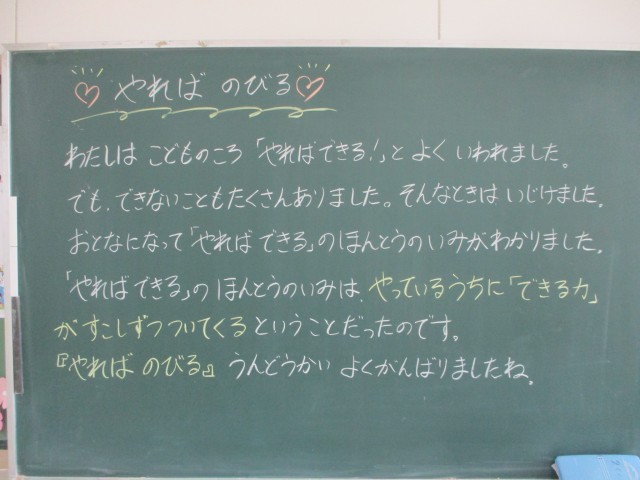 やれば のびる
わたしは こどものころ 「やればできる！」と よく いわれました。
でも、できないこともたくさんありました。そんなときは いじけました。
おとなになって「やれば できる」の ほんとうの いみが わかりました。
「やれば できる」の ほんとうの いみは、やっているうちに「できる力」
がすこしずつついてくる ということだったのです。
『やれば のびる』 うんどうかい よくがんばりましたね。